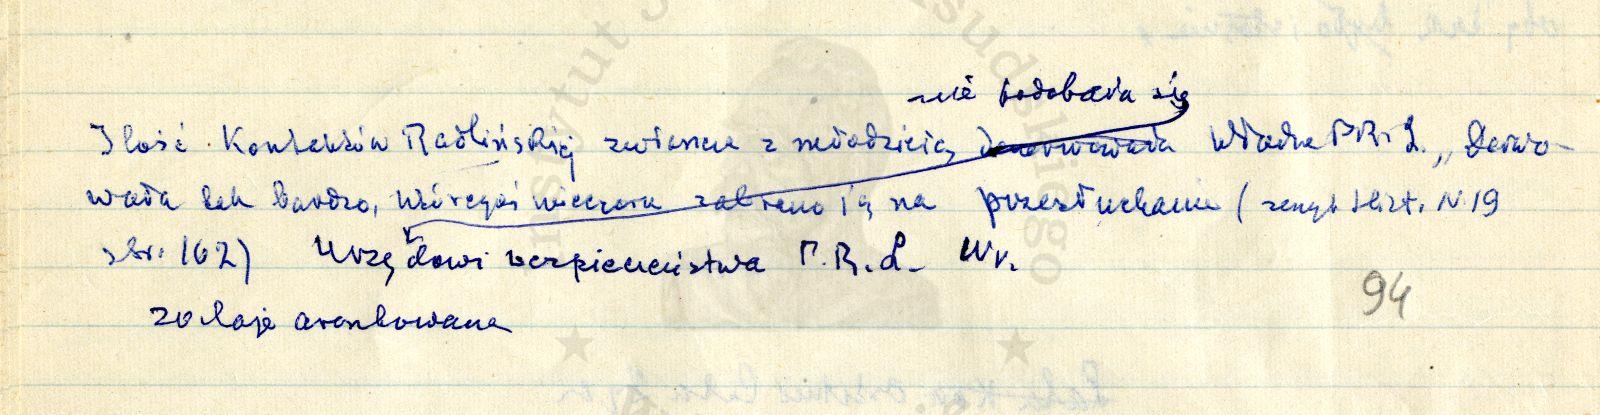 nie podobała się
Ilość Kontaktów Radlińskiej zwłaszcza z młodzieżą denerwowała Władze P.R.L. „Denerwo-
wała tak bardzo, któregoś wieczora zabrano ją na przesłuchanie (zeszyt Hist. N. 19
str. 162) Urzędowi bezpieczeństwa P.R.L. W r.
zostaje aresztowana
94
Instytut J sudskiego